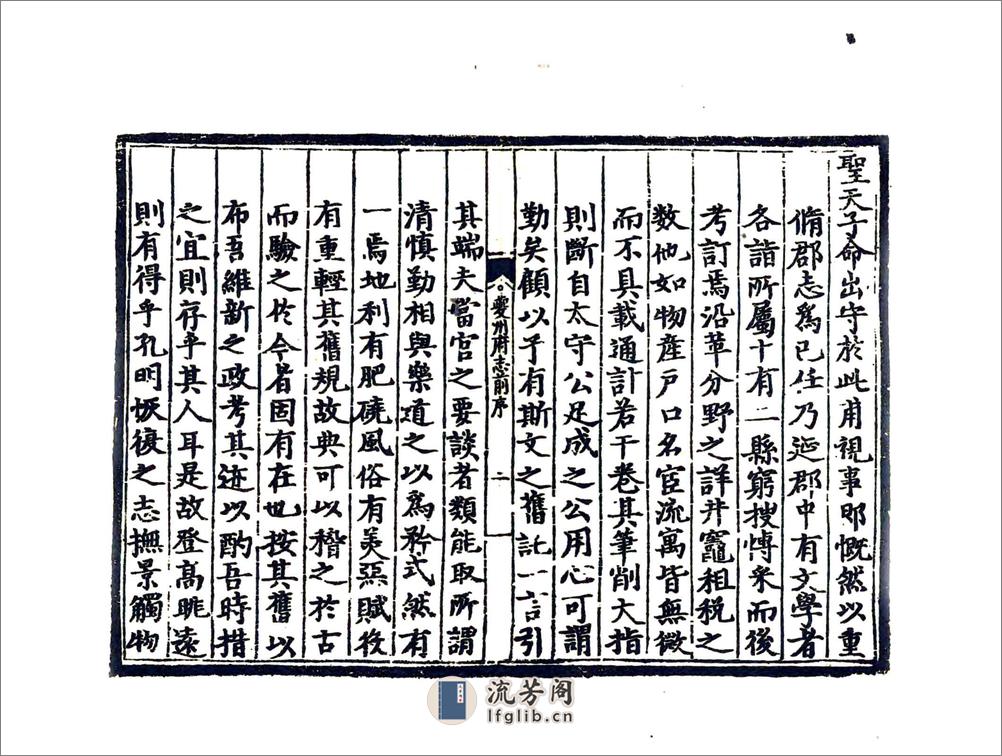 聖天子命出守於此甫視事即慨然以重
脩郡志為己任乃延郡中有文學者
各詣所屬十有二縣窮搜博采而後
考訂焉沿革分野之詳井竈租税之
数他如物產戶口名宦流寓皆無微
而不具載通計若干卷其筆削大指
則斷自太守公足成之公用心可謂
勤矣顧以予有斯文之舊託一言引
夔州府志前序
二
其端夫當官之要談者類能取所謂
清慎勤相與樂道之以為矜式然有
一焉地利有肥磽風俗有美惡賦役
有重輕其舊規故典可以稽之於古
而驗之於今者固有在也按其舊以
布吾維新之政考其迹以酌吾時措
之宜則存乎其人耳是故登高眺遠
則有得乎孔明恢復之志撫景觸物
流芳阁
lfglib.cn